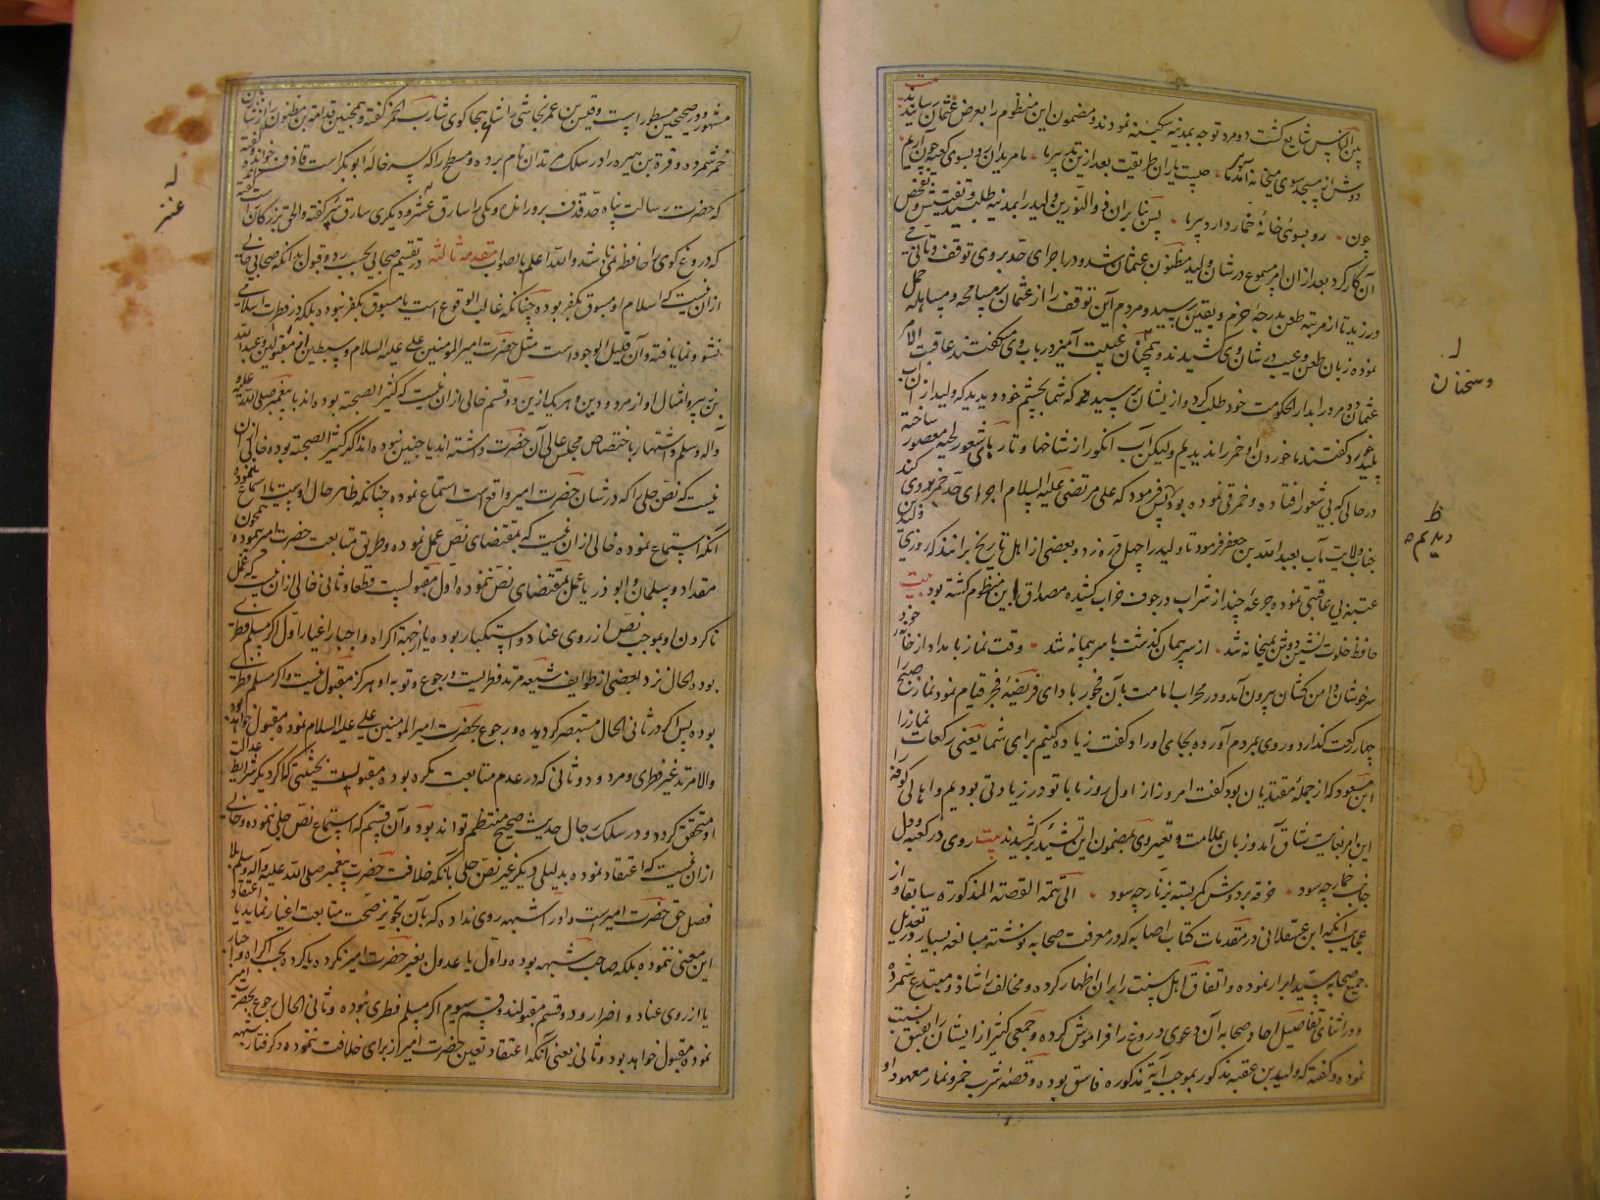 بین الناس شایع گشت دو مرد توجه بمدینه سکینه نمودند و مضمون این منظوم را بعرض عثمان رسانیدند بیت
دوش از مسجد سوی میخانه آمد پیر ما چیست یاران طریقت بعد ازین تدبیر ما ما مریدان رو بسوی کعبه چون آریم
چون رو بسوی خانهٔ خمار دارد پیر ما پس بنابران ذو النورین ولید را بمدینه طلبید و تفتیش و تفحص
آن کار کرد بعد از ان امر مسموع در شان ولید مظنون عثمان شد و در اجرای حدّ بروی توقف و تأنی
ورزید تا از مرتبه ظن بدرجهٔ جزم و یقین رسید و مردم این توقف را از عثمان بر مسامحه و مساهله حمل
نموده زبان طعن و عیب در شان وی کشیدند و سخنان غیبت آمیز در باب وی می گفتند عاقبت الامر
عثمان دو مرد را بدار الحکومت خود طلب کرد و از ایشان پرسید که شما بچشم خود دیدید که ولید از آن آب
پلید خورد گفتند ما خوردن او خمر را ندیدیم ولیکن آب انگور از شاخها و تارهای شعور لحیه معصور ساخته
در حالی که بی شعور افتاده و خمر قی نموده بود پس فرمود که علی مرتضی علیه السلام اجرای حدّ خمر بر وی کند
جناب ولایت مآب بعبد الله بن جعفر فرمود تا ولید را چهل درّه زد و بعضی از اهل تاریخ برانند که روزی ولید بن
عقبه بی عاقبتی نموده جرعهٔ چند از شراب در جوف خراب کشیده مصداق این منظوم گشته بود بیت
حافظ خلوت نشین دوش بمیخانه شد از سر پیمان گذشت با سر پیمانه شد وقت نماز بامداد از خانهٔ خود
سرخوشان دامن کشان بیرون آمد و در محراب امامت بآن فجور بادای فریضهٔ فجر قیام نمود نماز صبح را
چهار رکعت گذارد و روی بمردم آورده بجای اوراد گفت زیاده کنیم برای شما یعنی رکعات نماز را
ابن مسعود که از جملهٔ مقتدیان بود گفت امروز از اول روز ما با تو در زیادتی بودیم و اهالی کوفه را
این امر بغایت شاق آمد و زبان بملامت و تعییر وی بمضمون این نشید برکشیدند بیت روی در کعبه و دل
جانب خمار چه سود خرقه بر دوش کمر بسته بزنار چه سود الی تتمة القصة المذکورة سابقا و از
عجایب آنکه ابن عسقلانی در مقدمات کتاب اصابه که در معرفت صحابه نوشته مبالغه بسیار در تعدیل
جمیع صحابه سید ابرار نموده و اتفاق اهل سنت را بران اظهار کرده و مخالف را شاذ و مبتدع شمرده
و در اثنای تفاصیل احاد صحابه آن دعوی دروغ را فراموش کرده و جمعی کثیر از ایشان را بفسق نسبت
نموده و گفته که ولید بن عقبه مذکور بموجب آیهٔ مذکوره فاسق بوده و قصّه شرب خمر و نماز معهود او
و سخنان
ظ
دیدیم
مشهور و در صحیحین مسطور است و قیس بن عمر نجاشی را شاعر هجا گوی شارب الخمر گفته و همچنین قدامة بن مظعون را از شاربان
خمر شمرده و قرة بن هبیره را در سلک مرتدان نام برده و مسطح را که پسر خالهٔ ابو بکر است قاذف خوانده و گفته
که حضرت رسالت پناه حدّ قذف برو رانده و یکی را سارق و دیگری سارق گفته و الحق بزرگان گفته
که دروغ گوی را حافظه نمی باشد و الله اعلم بالصواب مقدمه ثالثه در تقسیم صحابی بحسب ردّ و قبول بدانکه صحابی خالی
ازان نیست که اسلام او مسبوق بکفر بوده چنانکه غالب الوقوع است یا مسبوق بکفر نبوده بلکه در فطرت اسلام
نشو و نما یافته و آن قلیل الوجود است مثل حضرت امیر المومنین علی علیه السلام و سبطین او و عبد الله
بن و امثال او از مرد و زن و هر یک ازین دو قسم خالی ازان نیست که کثیر الصحبه بوده اند با پیغمبر صلی الله علیه و
آله وسلم و اشتهار باختصاص مجلس عالی آن حضرت داشته اند یا چنین نبوده اند اگر کثیر الصحبه بوده خالی ازان
نیست که نصّ جلی را که در شان حضرت امیر واقع است استماع نموده چنانکه ظاهر حال اوست یا استماع ننموده
آنکه استماع نموده خالی ازان نیست که بمقتضای نصّ عمل نموده و طریق متابعت حضرت امیر پیموده همچون
مقداد و سلمان و ابو ذر یا عمل بمقتضای نصّ ننموده اول مقبولست قطعا و ثانی خالی ازان نیست که عمل
ناکردن او بموجب نصّ از روی عناد و استکبار بوده یا از جهة اکراه و اجبار اغیار اول اگر مسلم فطری
بوده الحال نزد بعضی از طوایف شیعه مرتد فطریست و رجوع و توبه او هرگز مقبول نیست و اگر مسلم فطری
بوده پس اگر در ثانی الحال مستبصر گردیده و رجوع بحضرت امیر المومنین علی علیه السلام نموده مقبول خواهد بود
و الا مرتد غیر فطری و مردود و ثانی که در عدم متابعت مکره بوده مقبولست بحیثیتی که اگر دیگر شرایط عدالت
او متحقق گردد و در سلک رجال حدیث صحیح منتظم تواند بود و آن قسم که استماع نصّ جلی ننموده خالی
ازان نیست که اعتقاد نموده بدلیلی دیگر غیر نصّ جلی بآنکه خلافت حضرت پیغمبر صلی الله علیه و آله وسلم بلا
فصل حق حضرت امیر است و او را شبهه روی نداده که بآن تجویز صحت متابعت اغیار نماید یا اعتقاد
این معنی ننموده بلکه صاحب شبهه بوده و اول یا عدول بغیر حضرت امیر نکرده یا کرده بحسب اکراه و اجبار
یا از روی عناد و اضرار و دو قسم مقبولند و قسم سیوم اگر مسلم فطری نبوده و ثانی الحال رجوع بحضرت امیر
نموده مقبول خواهد بود و ثانی یعنی آنکه اعتقاد تعین حضرت امیر از برای خلافت ننموده و گرفتار شبهه